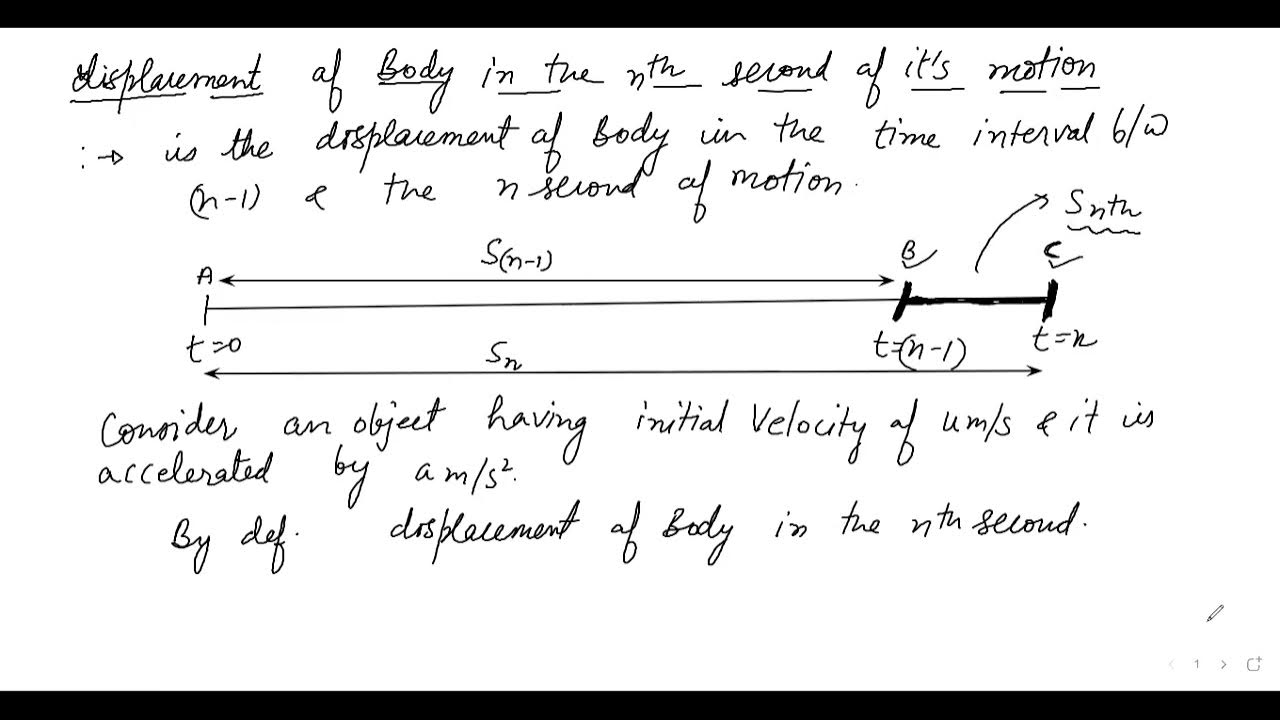 displacement of Body in the nth second of it's motion
:→ is the displacement of Body in the time interval b/w
(n-1) & the n second of motion.
Snth
S(n-1)
A B C
t=0 t=(n-1) t=n
Sn
Consider an object having initial Velocity of u m/s & it is
accelerated by a m/s².
By def. displacement of Body in the nth second.
1